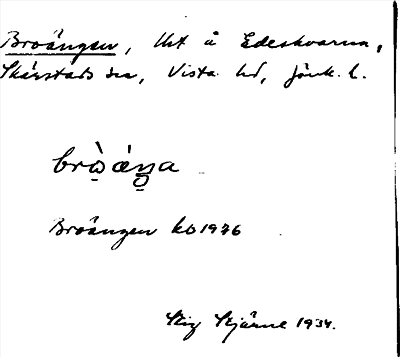 Broängen, Uet å Edeskvarna,
Skärstads sn, Vista hd, Jönk. l.
bròạ̈́ŋa
Broängen kb 1946
Stig Stjärne 1934.